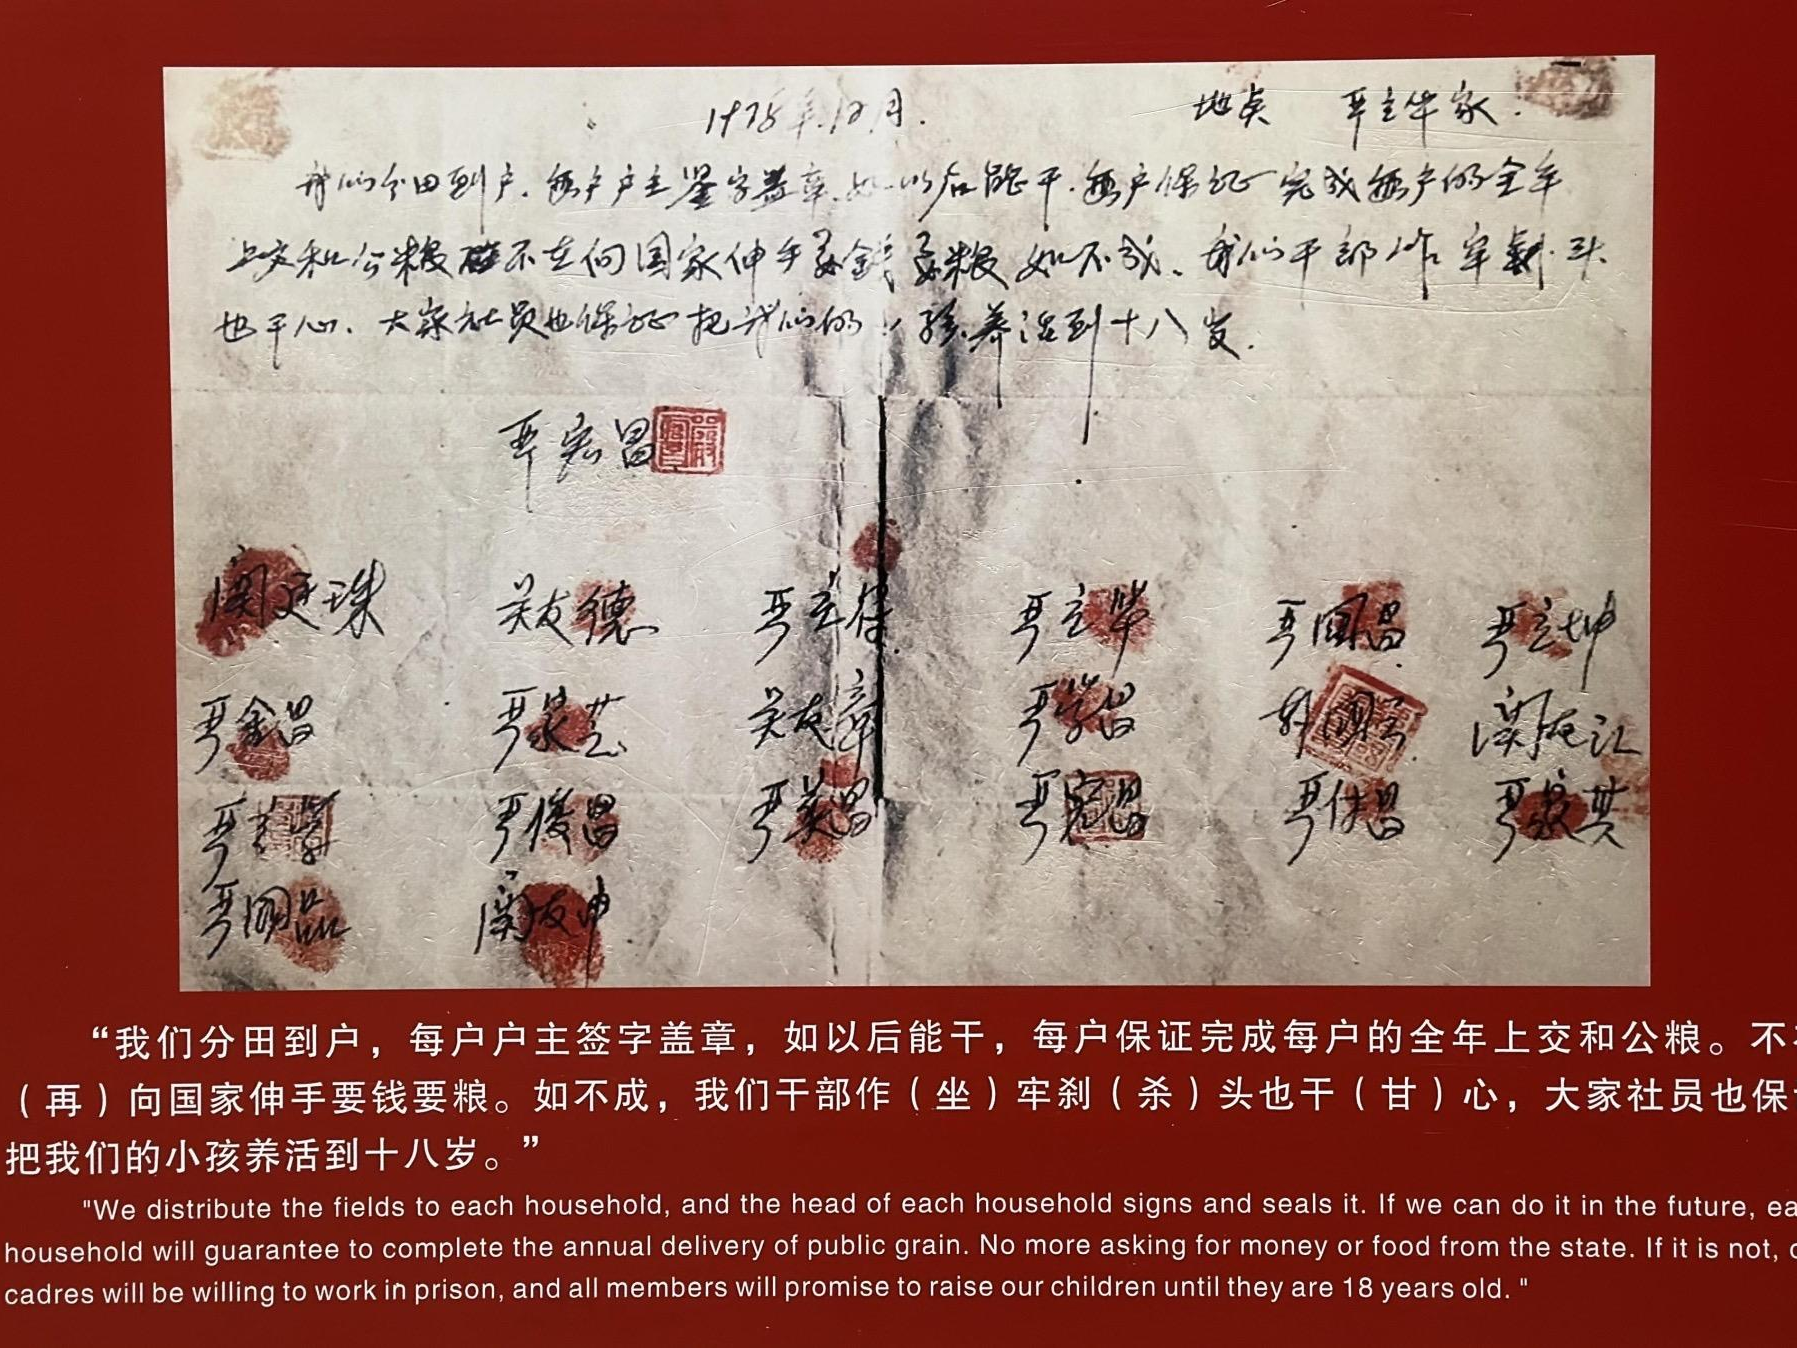 1978年12月. 地点 严立华家.
我们分田到户.每户户主签字盖章.如以后能干.每户保证完成每户的全年
上交和公粮 不在向国家伸手要钱要粮 如不成、我们干部作牢刹头
也干心、大家社员也保证把我们的小孩养活到十八岁.
严宏昌
关廷珠 关友德 严立符 严立华 严国昌 严立坤
严金昌 严家芝 关友章 严学昌 韩国云 关友江
严立学 严俊昌 严美昌 严宏昌 严付昌 严家其
严国品 关友申
“我们分田到户，每户户主签字盖章，如以后能干，每户保证完成每户的全年上交和公粮。不在
（再）向国家伸手要钱要粮。如不成，我们干部作（坐）牢刹（杀）头也干（甘）心，大家社员也保
把我们的小孩养活到十八岁。”
"We distribute the fields to each household, and the head of each household signs and seals it. If we can do it in the future, ea
household will guarantee to complete the annual delivery of public grain. No more asking for money or food from the state. If it is not, o
cadres will be willing to work in prison, and all members will promise to raise our children until they are 18 years old. "